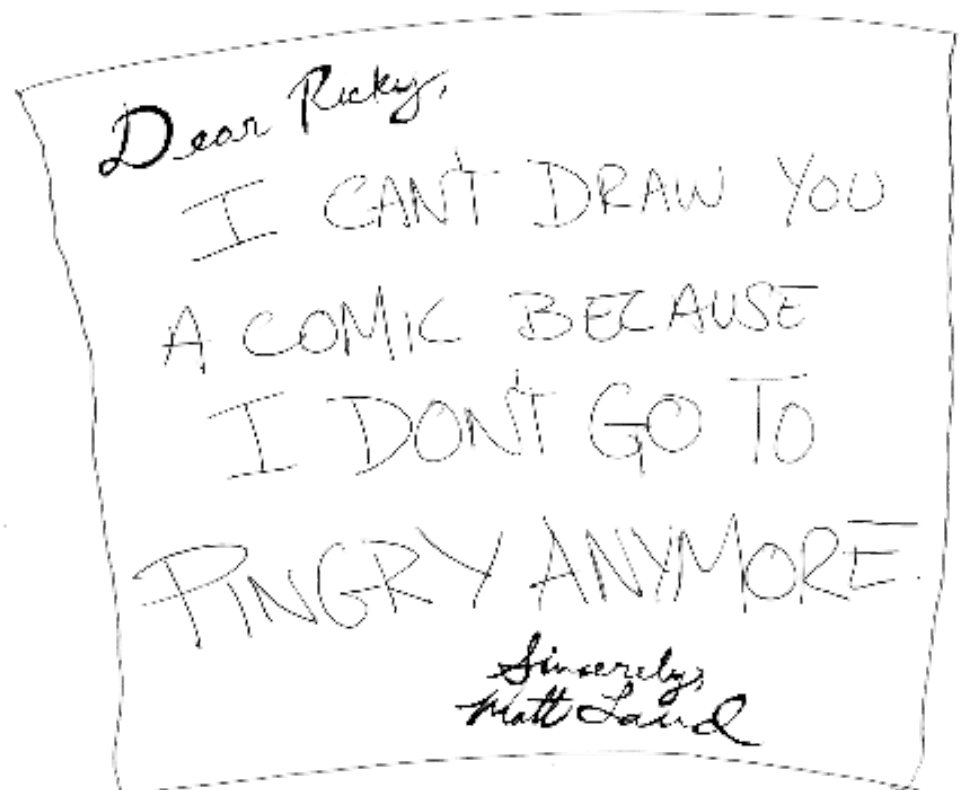 Dear Ricky,
I CAN'T DRAW YOU
A COMIC BECAUSE
I DON'T GO TO
PINGRY ANYMORE.
Sincerely,
Matt Laud